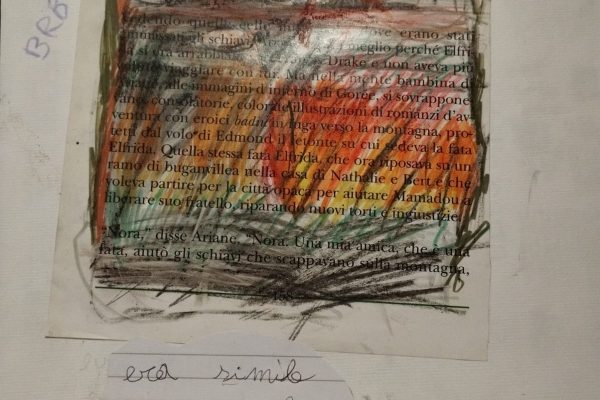 BRB
vedendo quelle celle dove erano stati
gli schiavi meglio perché Elfri-
da si era arrabbiata Drake e non aveva più
con lui. Ma nella mente bambina di
alle immagini d'inferno di Gorée, si sovrappone-
vano, consolatorie, colorate illustrazioni di romanzi d'av-
ventura con eroici badui in fuga verso la montagna, pro-
tetti dal volo di Edmond il su cui sedeva la fata
Elfrida. Quella stessa fata Elfrida, che ora riposava su un
ramo di buganvillea nella casa di Nathalie e Bert e che
voleva partire per la città opaca per aiutare Mamadou a
liberare suo fratello, riparando nuovi torti e ingiustizie.
"Nora," disse Ariane, "Nora. Una mia amica, che è una
fata, aiutò gli schiavi che scappavano sulla montagna,
158
era simile